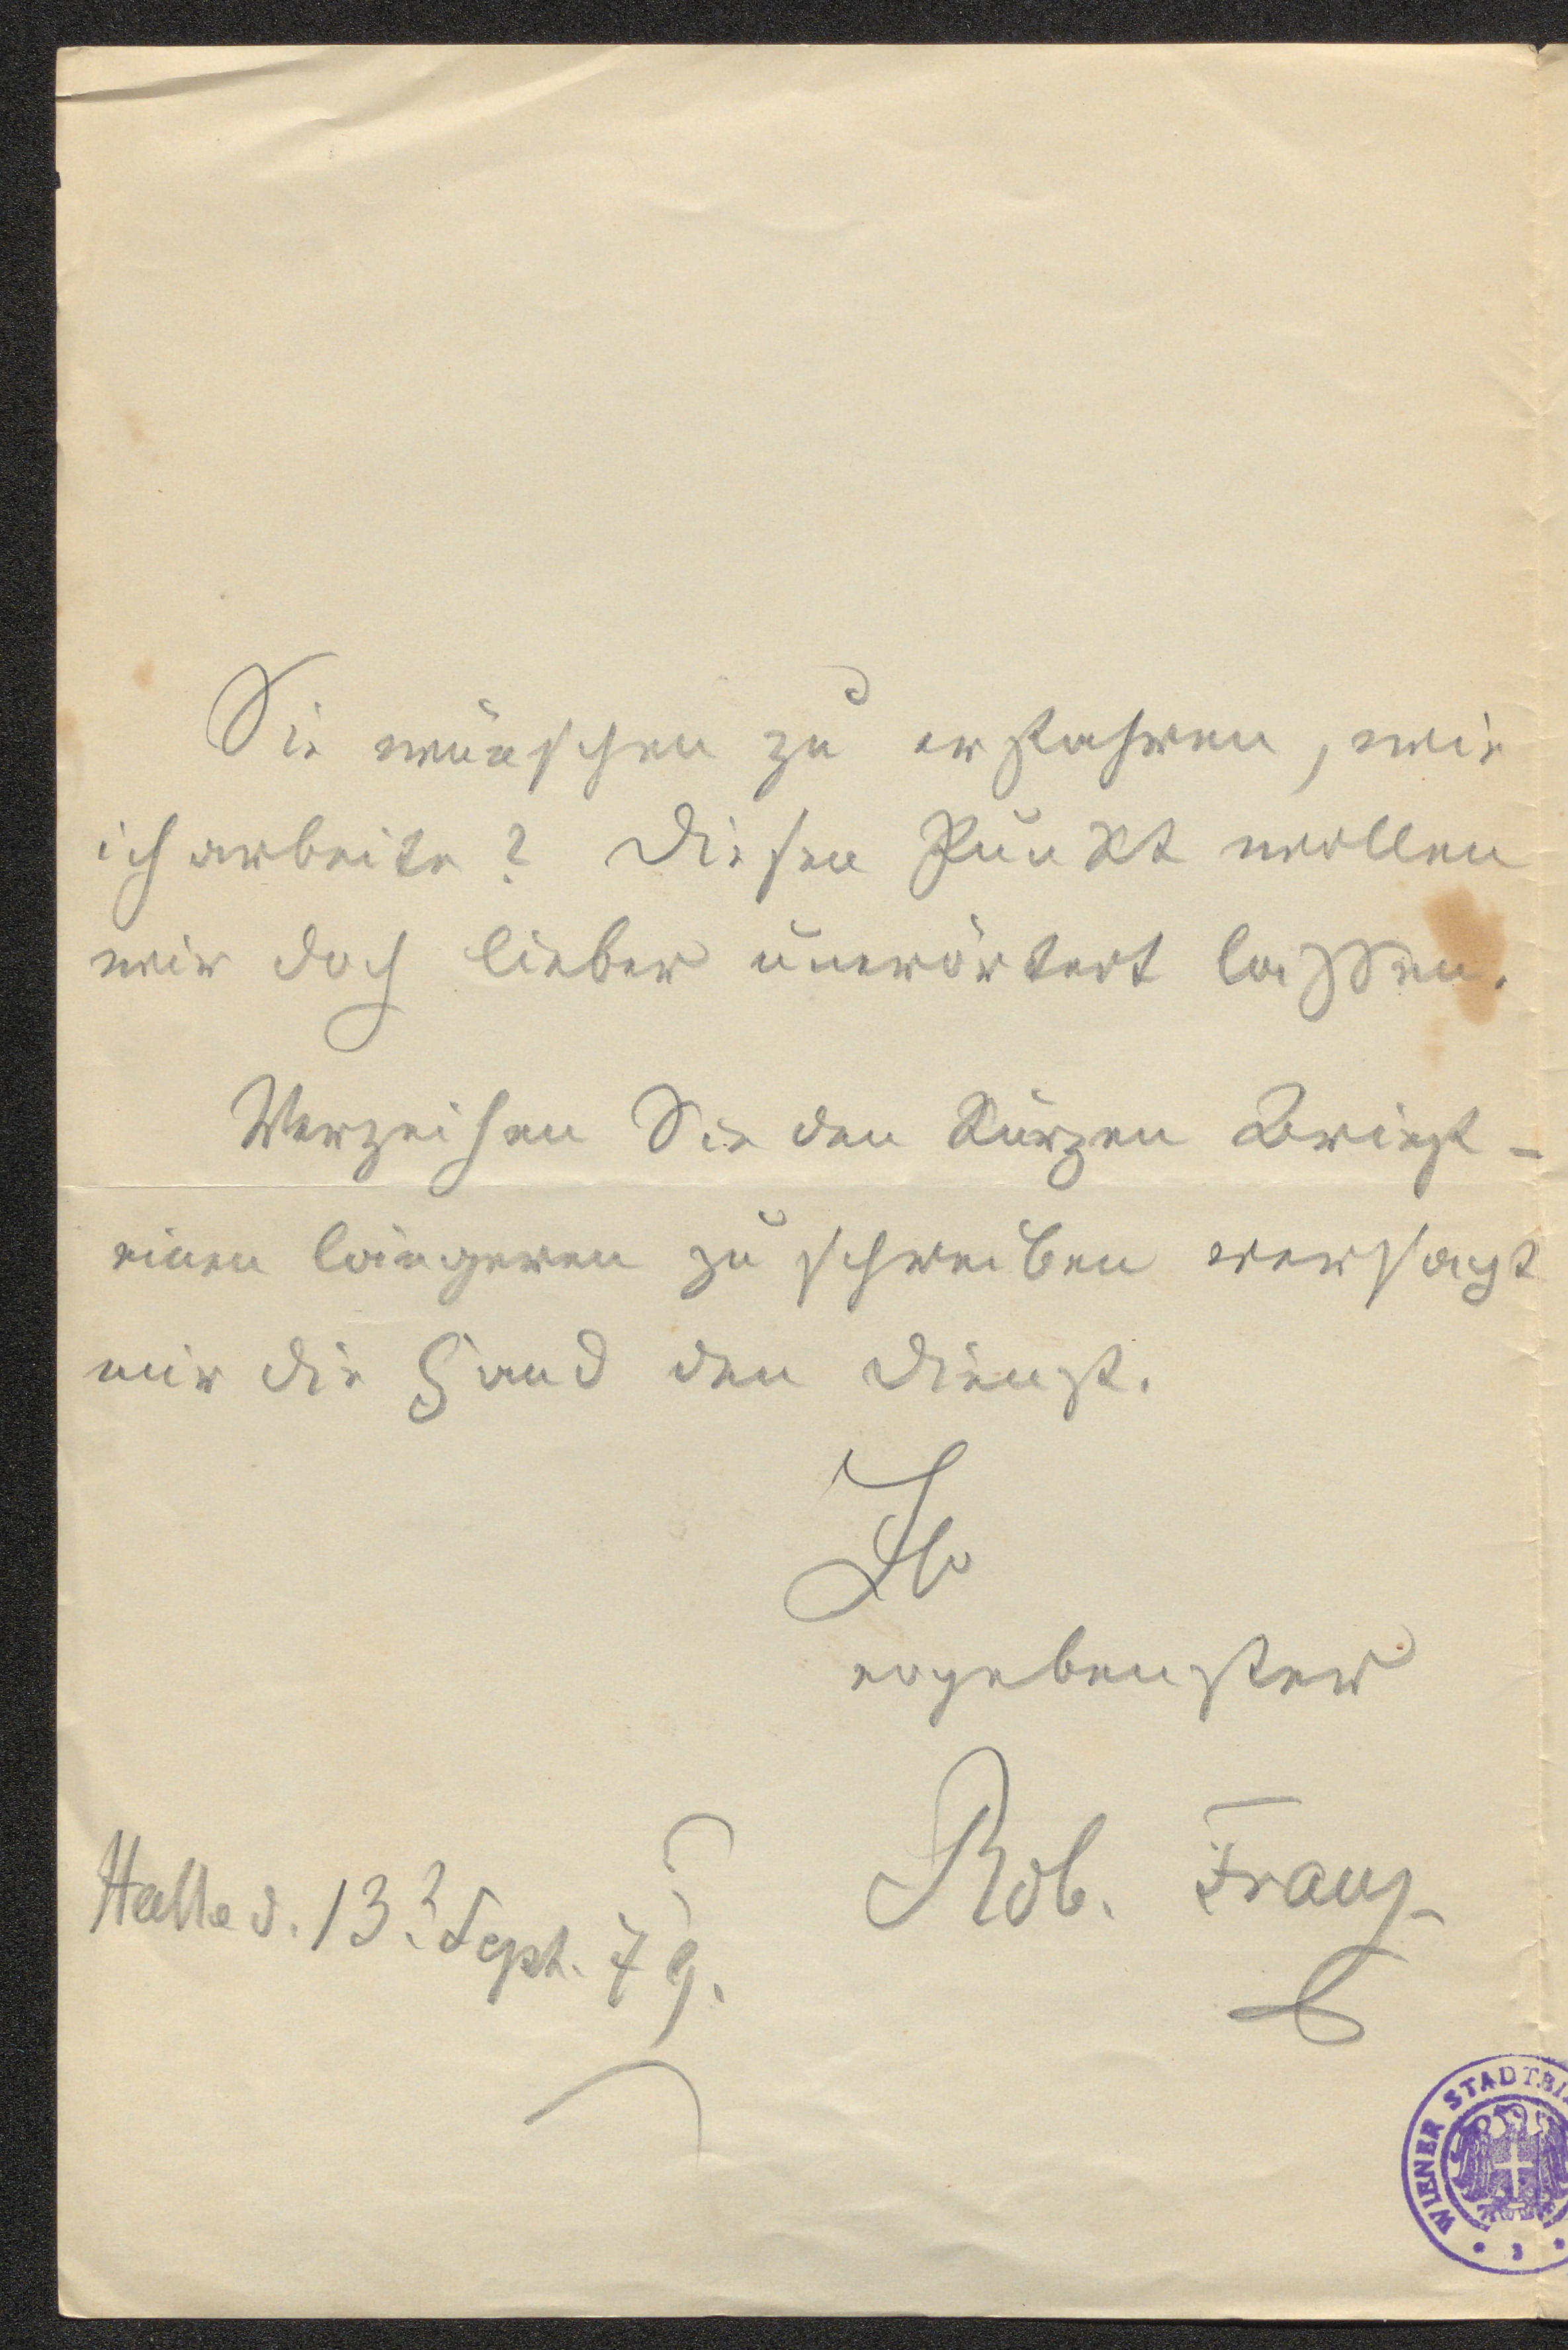 Sie wünschen zu erfahren, wie
ich arbeite? Diesen Punkt wollen
wir doch lieber unerörtert laßen.
Verzeihen Sie den kurzen Brief –
einen längeren zu schreiben versagt
mir die Hand den Dienst.
Ihr
ergebenster
Rob. Franz
Halle d. 13t Sept. 79.
WIENER STADTBI
* 3 *